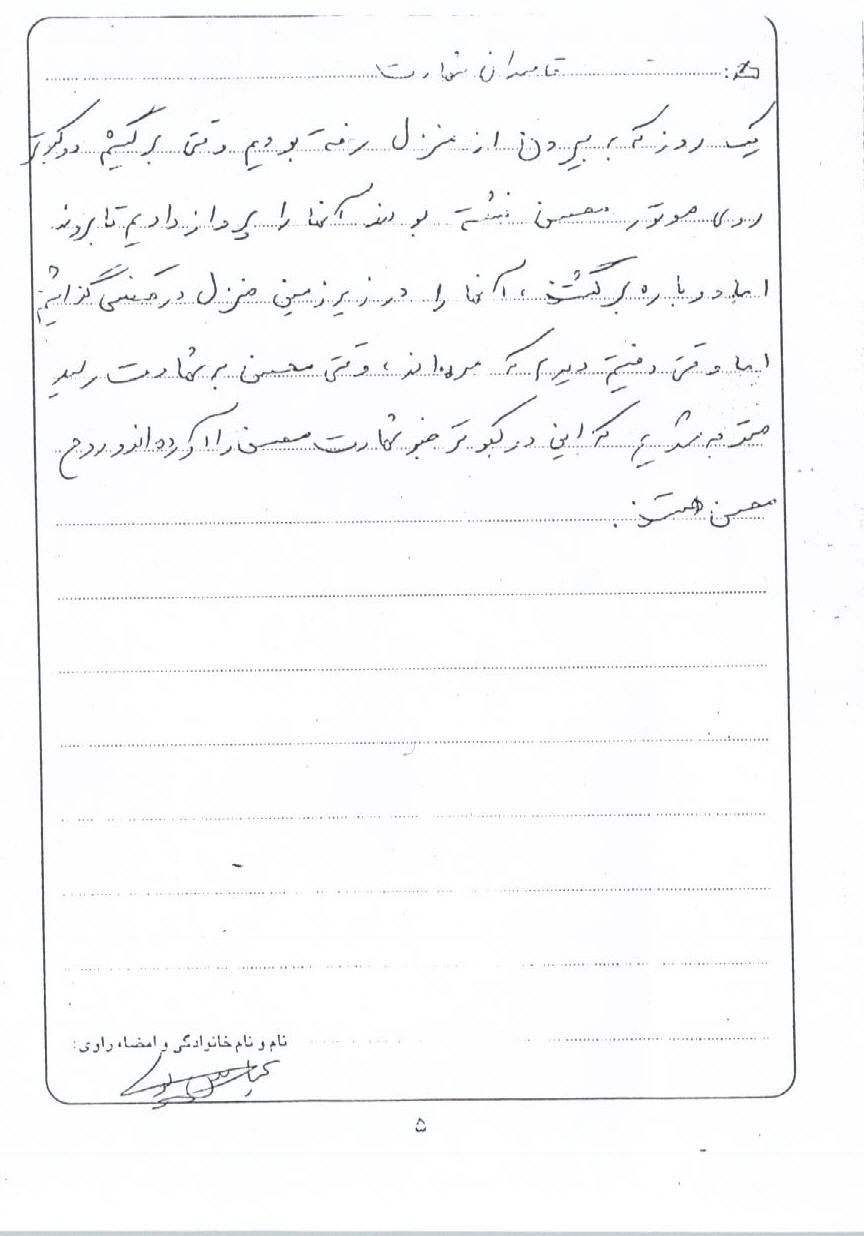 قاصدان شهادت
یک روز که به بیرون از منزل رفته بودیم وقتی برگشتیم دو کبوتر
روی موتور محسن نشسته بودند آنها را پرواز دادیم تا بروند
اما دوباره برگشتند، آنها را در زیرزمین منزل در قفسی گذاشتیم
اما وقتی رفتیم دیدیم که مرده‌اند، وقتی محسن به شهادت رسید
متوجه شدیم که این دو کبوتر خبر شهادت محسن را آورده اند و روح
محسن هستند.
نام و نام خانوادگی و امضاء راوی:
۵